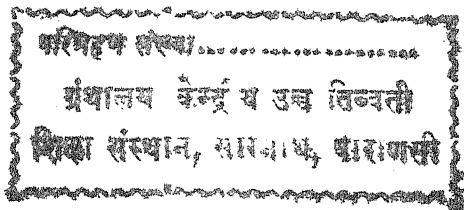 परिग्रहण संख्या....................
ग्रंथालय केन्द्रीय उच्च तिब्बती
शिक्षा संस्थान, सारनाथ, वाराणसी